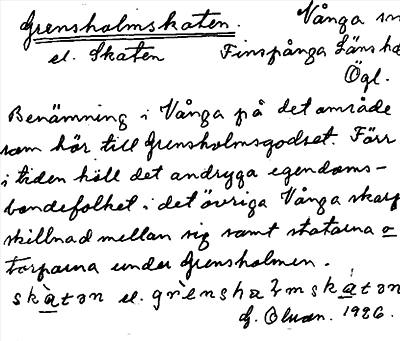 Grensholmskaten. Vånga sn
el. Skaten Finspånga Länshä
Ögl.
Benämning i Vånga på det område
som hör till Grensholmsgodset. Förr
i tiden höll det andryga egendoms-
bondefolket i det övriga Vånga skarp
skillnad mellan sig samt statarna o
torparna under Grensholmen.
skàtən el. grènshaʟmskátən
G. 1926.